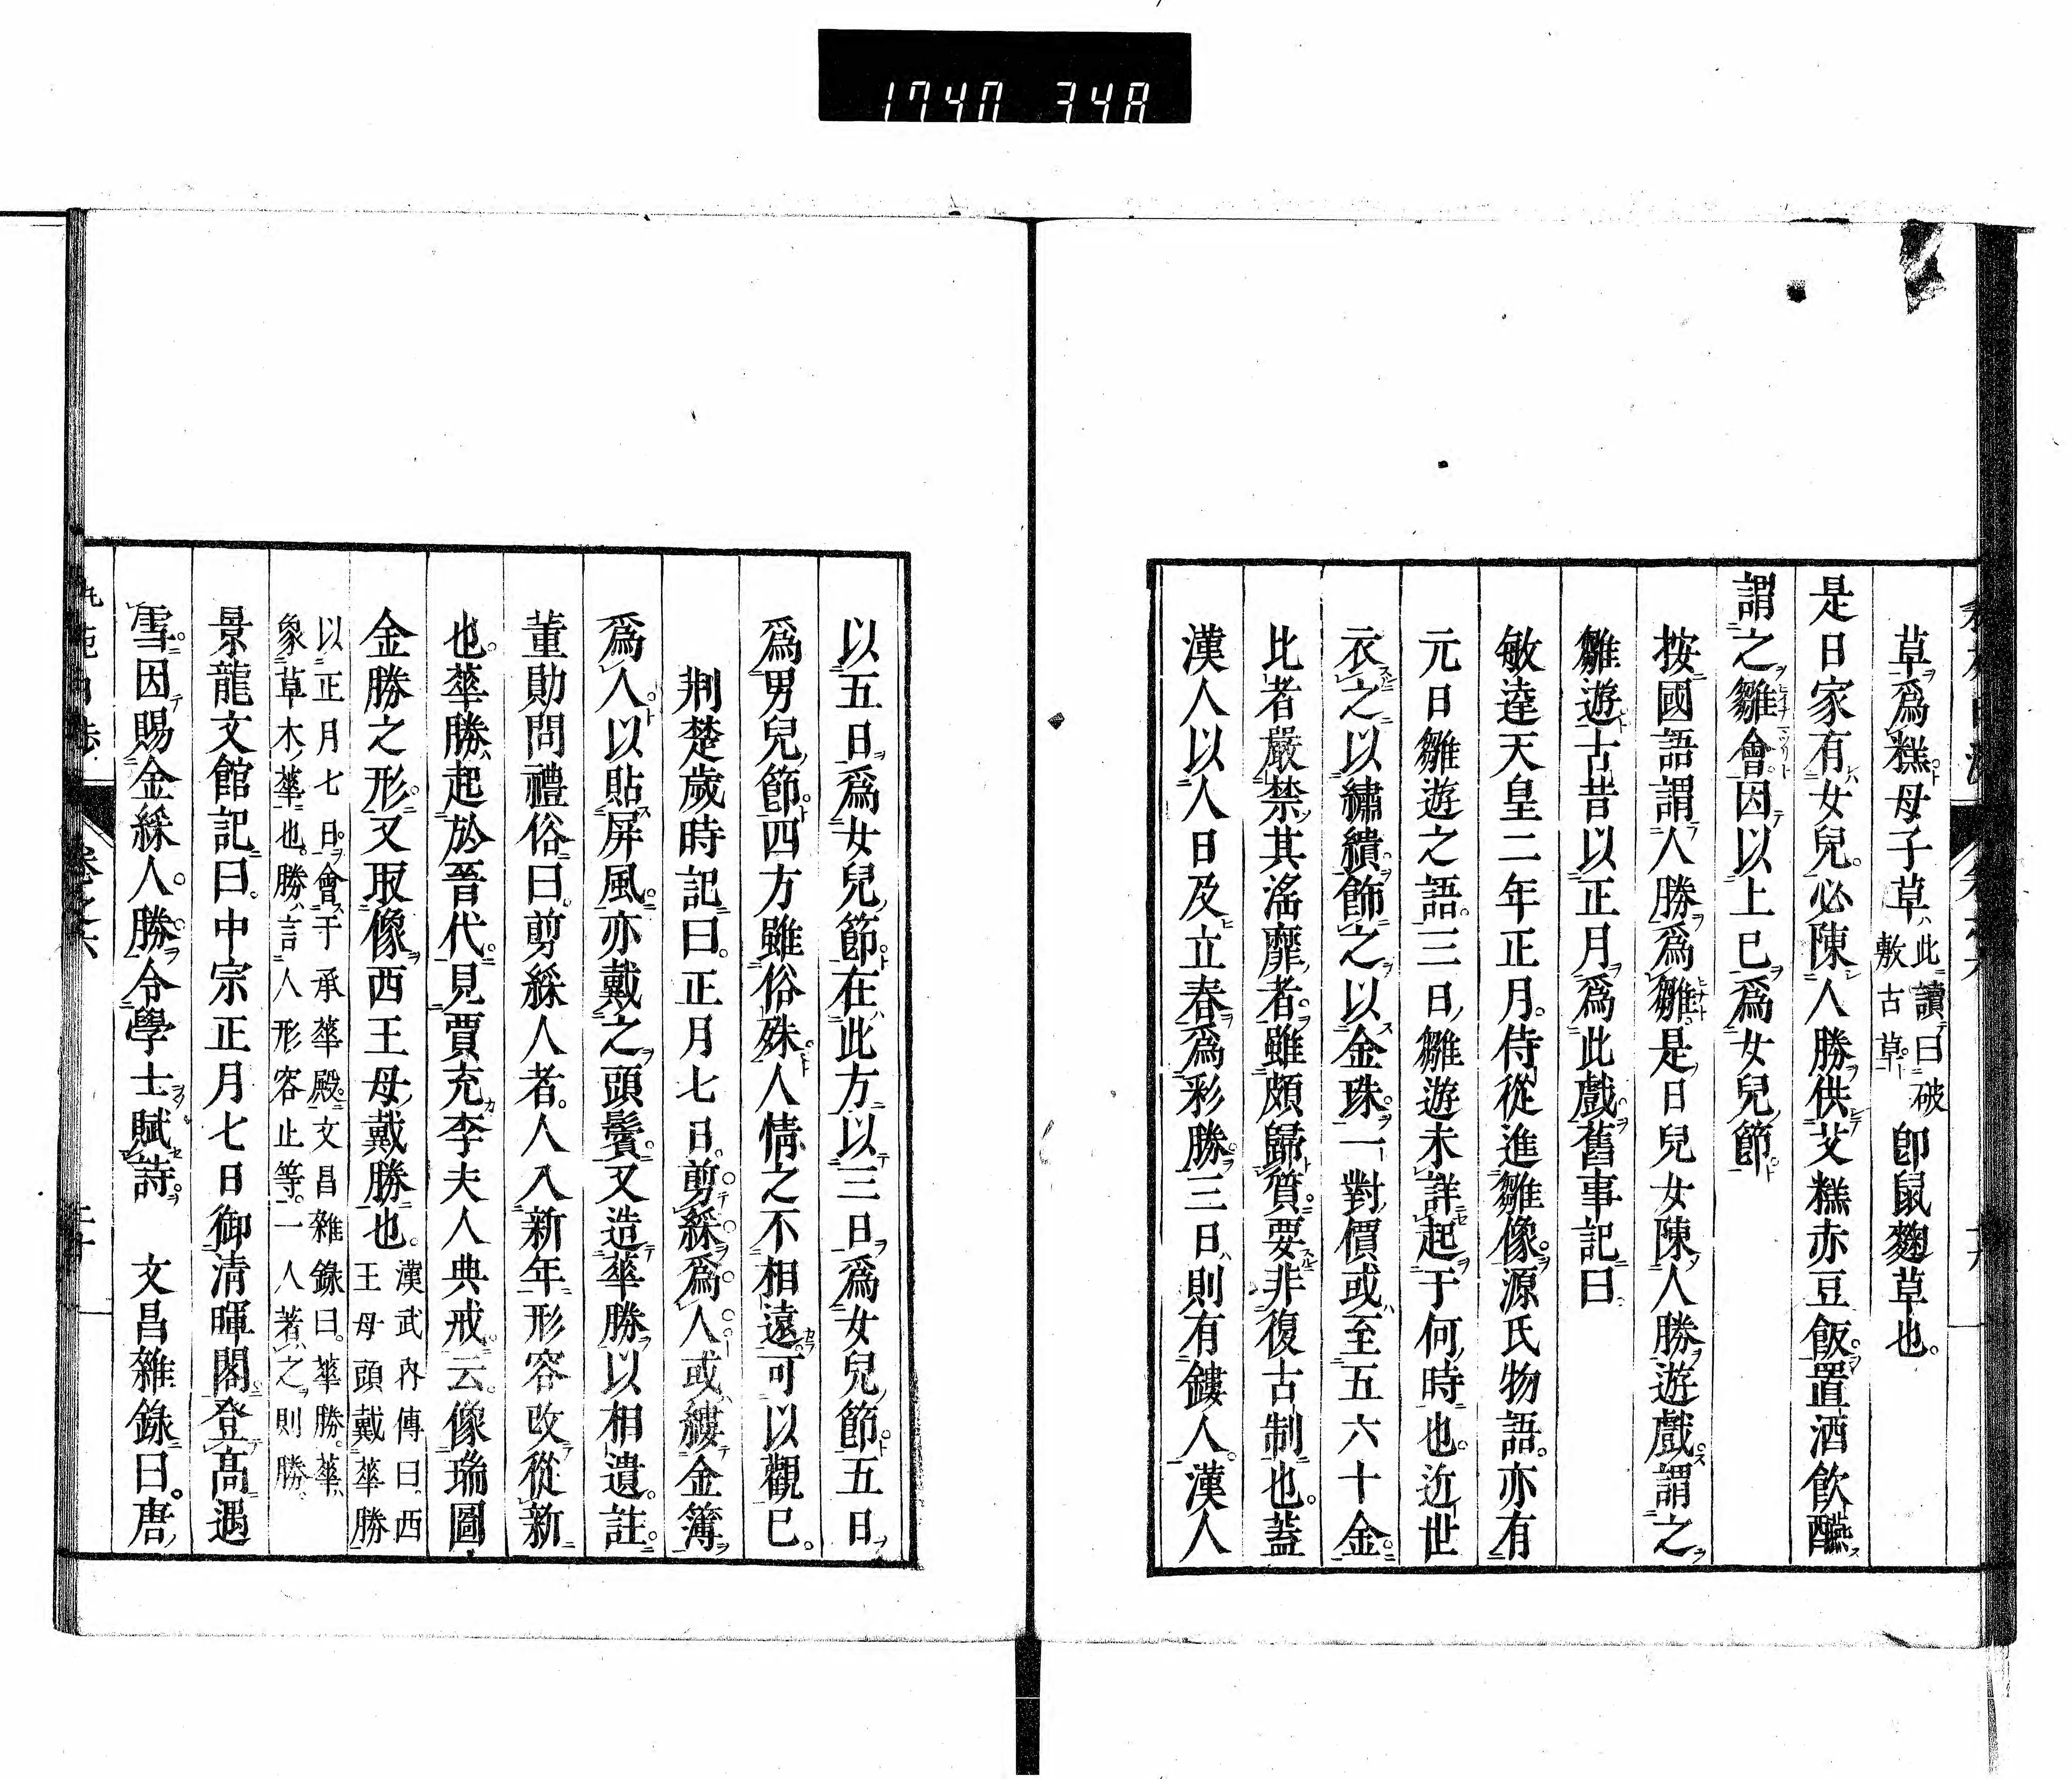 1740 348
草爲糕母子草此讀曰破敷古草卽鼠麴草也。
是日家有女兒。必陳人勝供艾糕赤豆飯。置酒飮醼
謂之雛會。因以上巳爲女兒節。
按國語謂人勝爲雛。是日兒女陳人勝遊戲。謂之
雛遊。古昔以正月爲此戲。舊事記曰
敏達天皇二年正月。侍從進雛像。源氏物語。亦有
元日雛遊之語。三日雛遊未詳起于何時也。近世
衣之以繡繢。飾之以金珠。一對價或至五六十金。
比者嚴禁其滛靡者。雖頗歸質。要非復古制也。蓋
漢人以人日及立春爲彩勝。三日則有鏤人。漢人
以五日爲女兒節。在此方以三日爲女兒節。五日
爲男兒節。四方雖俗殊。人情之不相遠。可以觀已。
荆楚歲時記曰。正月七日。剪綵爲人。或縷金簿
爲人。以貼屏風。亦戴之頭鬢。又造華勝以相遺。註。
董勛問禮俗曰。剪綵人者。人入新年。形容改從新
也。華勝起於晉代。見賈充李夫人典戒。云。像瑞圖
金勝之形。又取像西王母戴勝也。漢武內傳曰、西王母頭戴華勝
以正月七日。會于承華殿。文昌雜錄曰。華勝。華象草木華也。勝言人形容止等。一人著之則勝
景龍文館記曰。中宗正月七日御淸暉閣。登高遇
雪。因賜金綵人。勝。令學士賦詩。 文昌雜錄曰。唐
卷之六